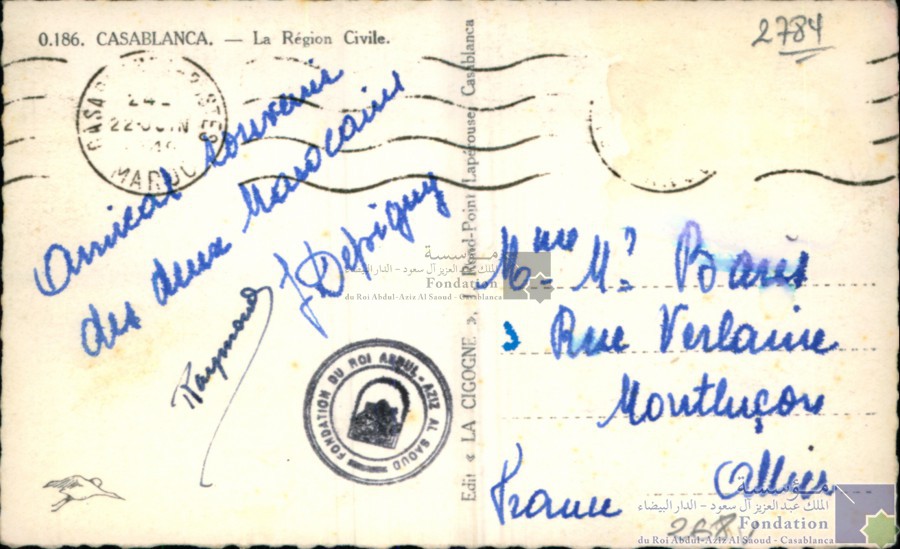 0.186. CASABLANCA. — La Région Civile.
2784
22 JUIN
MAROC
Amical souvenir
des deux Marocains
J Depigny
Raymond
FONDATION DU ROI ABDUL-AZIZ AL SAOUD
Edit « LA CIGOGNE », Rond-Point Lapérouse, Casablanca
Mme Mr
3 Rue Verlaine
Montluçon
Allier
France
مؤسسة
الملك عبد العزيز آل سعود - الدار البيضاء
Fondation
du Roi Abdul-Aziz Al Saoud - Casablanca
مؤسسة
الملك عبد العزيز آل سعود - الدار البيضاء
Fondation
du Roi Abdul-Aziz Al Saoud - Casablanca